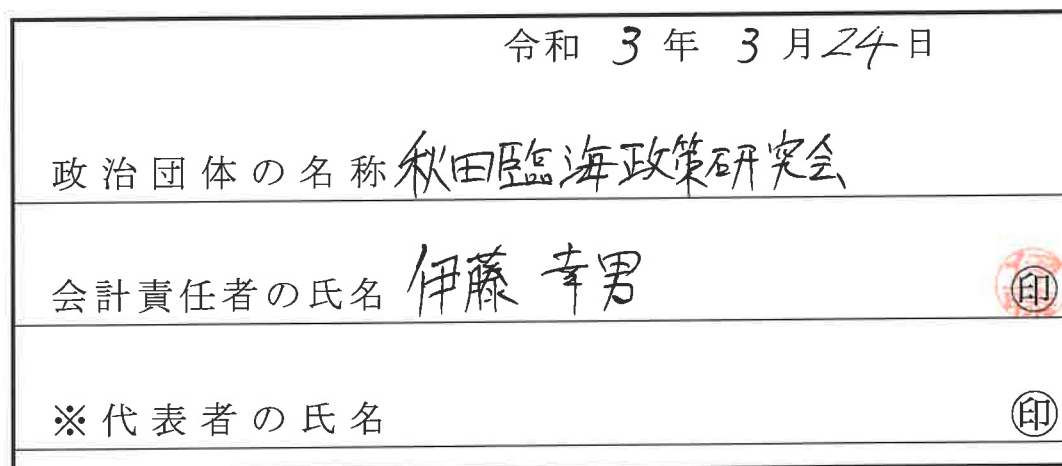 令和 3 年 3 月 24 日
政治団体の名称 秋田臨海政策研究会
会計責任者の氏名 伊藤 幸男 ㊞
※代表者の氏名 ㊞